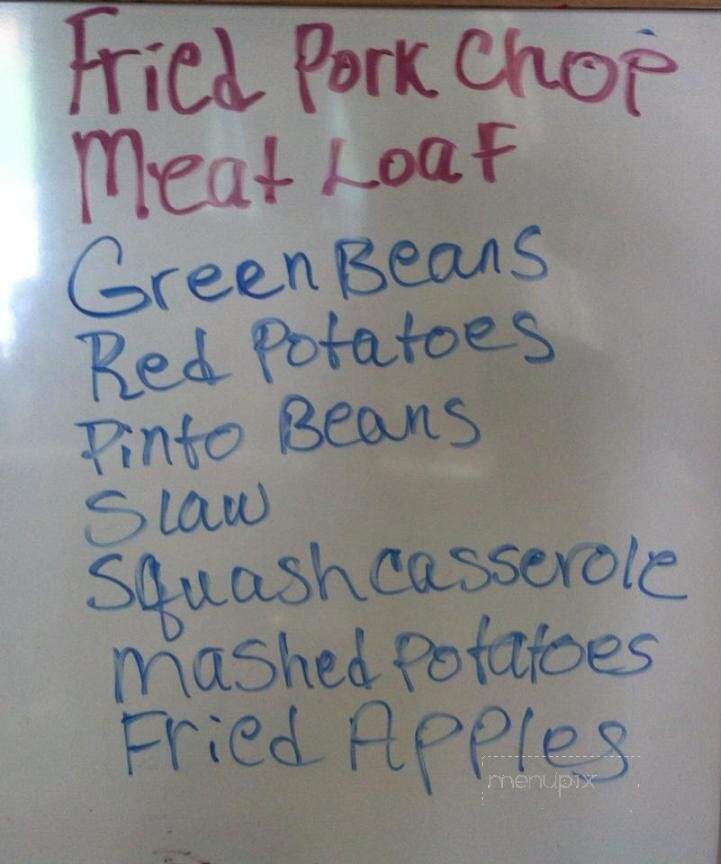 Fried Pork Chop
Meat Loaf
Green Beans
Red Potatoes
Pinto Beans
Slaw
Squash casserole
mashed Potatoes
Fried Apples
menupix